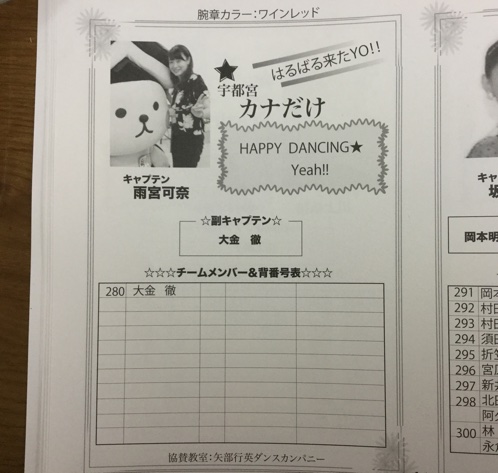 腕章カラー：ワインレッド
はるばる来たYO!!
★
宇都宮
カナだけ
HAPPY DANCING★
Yeah!!
キャプテン
雨宮可奈
☆副キャプテン☆
大金 徹
☆☆☆チームメンバー&背番号表☆☆☆
280 大金 徹
協賛教室：矢部行英ダンスカンパニー
キャ
坂
岡本明
291 岡本
292 村田
293 村田
294 須田
295 折笠
296 宮原
297 新井
298 北田
阿久
300 林
永